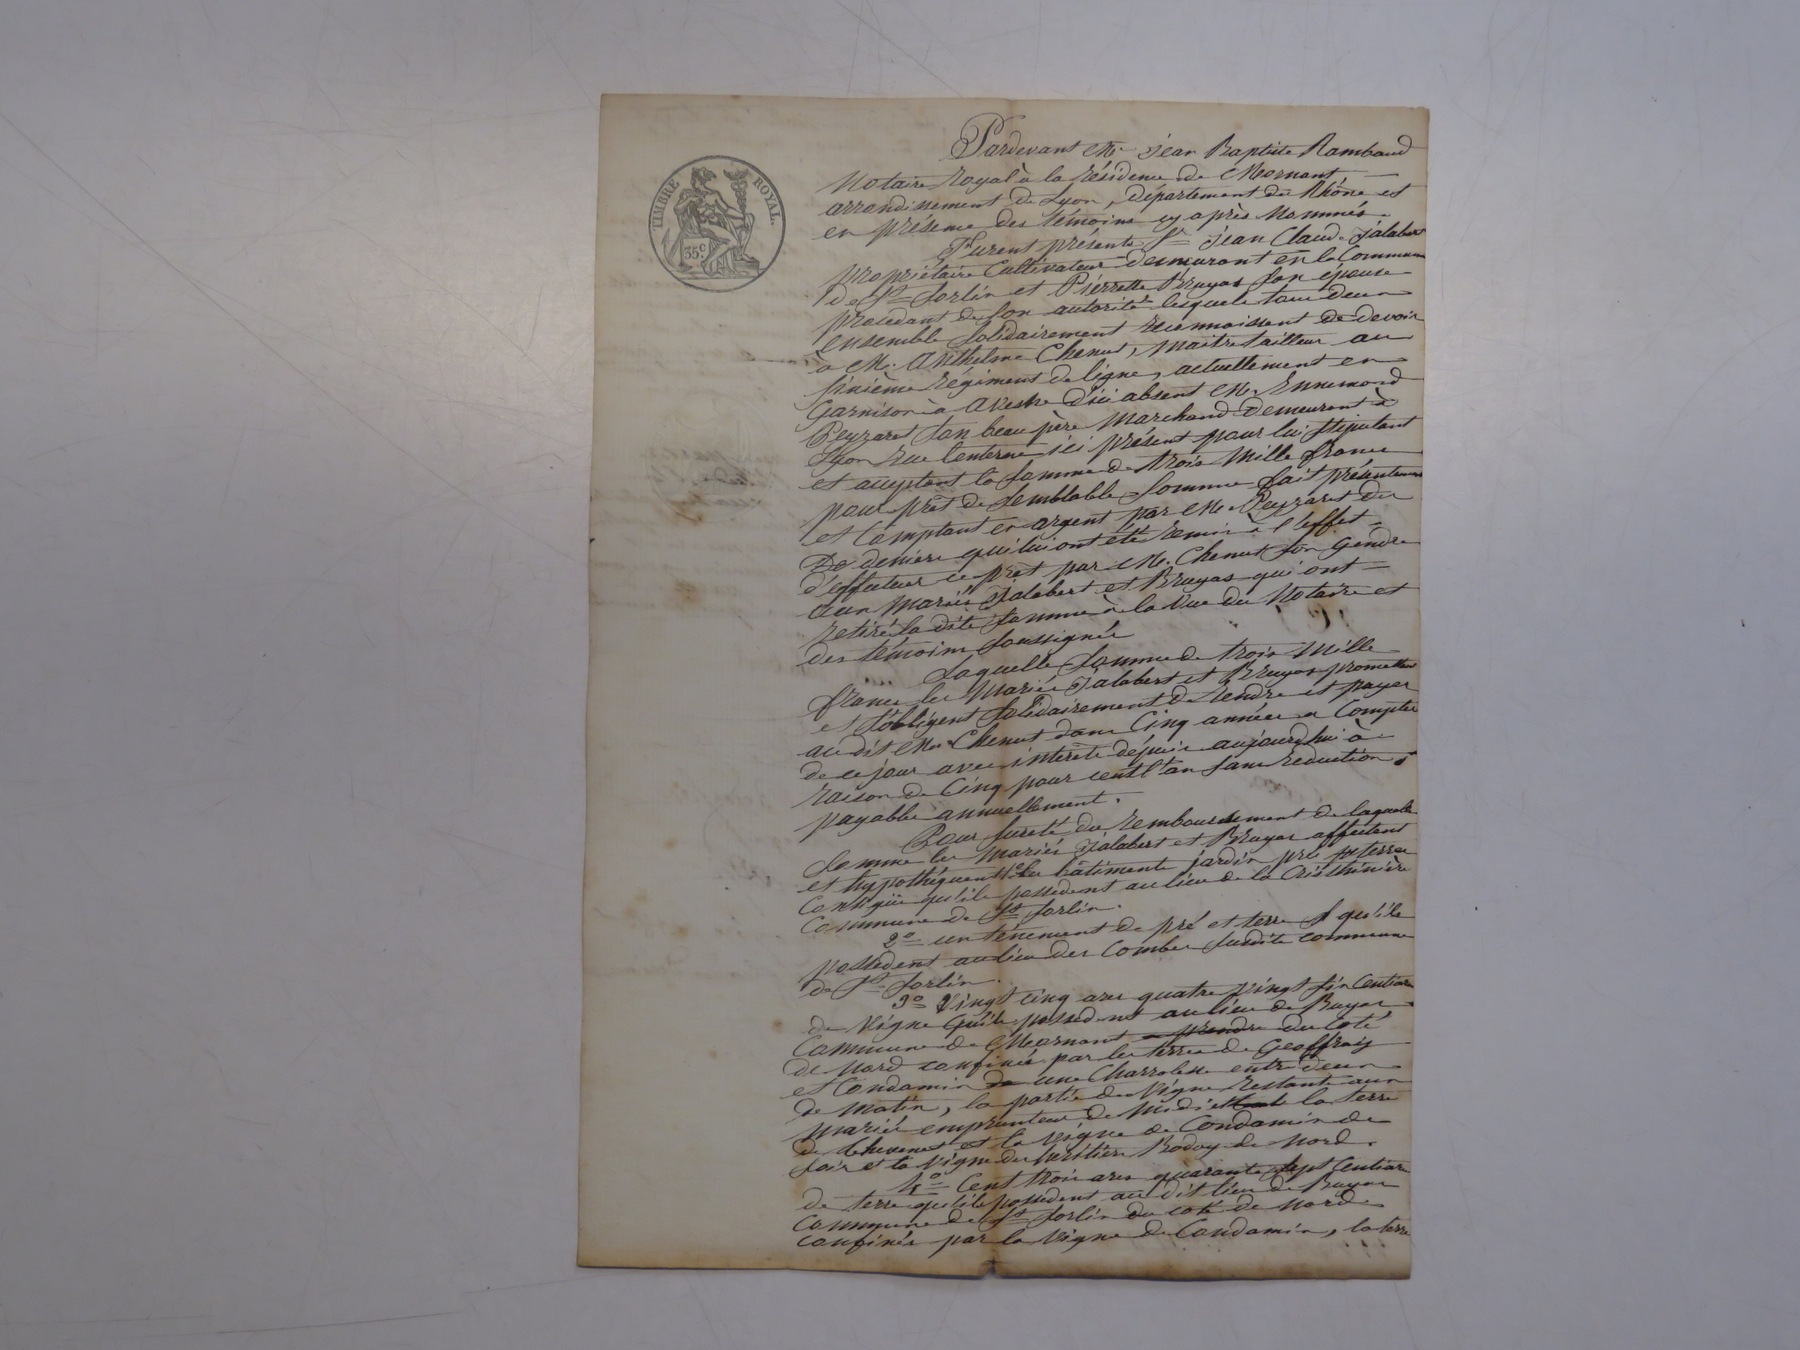 TIMBRE ROYAL.
35c.
Pardevant Me. Jean Baptiste Rambaud
Notaire Royal à la résidence de Mornant,
arrondissement de Lyon, département du Rhône et
en présence des témoins cy après Nommés.
Furent présents Sr. Jean Claude Jalabert
propriétaire Cultivateur demeurant en la Commune
de St Sorlin et Pierrette Bruyas son épouse
procédant de son autorité lesquels tous deux
ensemble solidairement reconnaissent de devoir
à Mr. Anthelme Chenet, Maître tailleur au
sixième Régiment de ligne, actuellement en
Garnison à d'ici absent Mr. Ennemond
Peyzaret son beau père Marchand demeurant à
Lyon rue Lenterne ici présent pour lui stipulant
et acceptant la somme de trois Mille francs
pour prêt de semblable somme fait présentement
et Comptant en argent par Mr. Peyzaret des
De deniers qui lui ont été remis à l'effet
d'effectuer ce prêt par Mr. Chenet son Gendre
aux Mariés Jalabert et Bruyas qui ont
retiré la dite somme à la Vue du Notaire et
des témoins soussignés
Laquelle somme de trois Mille
francs les Mariés Jalabert et Bruyas promettent
et s'obligent solidairement de rendre et payer
au dit Mr. Chenet dans Cinq années a Compter
de ce jour avec intérêts depuis aujourd'hui à
raison de Cinq pour cent l'an sans réduction
payables annuellement.
Pour sureté du remboursement de laquelle
somme les Mariés Jalabert et Bruyas affectent
et hypothéquent 1o les bâtiments jardin pré terre
Contigüe qu'ils possèdent au lieu de la
Commune de St. Sorlin.
2o un ténement de pré et terre qu'ils
possèdent au lieu des Combes susdite commune
de St. Sorlin.
3o Vingt cinq ares quatre vingt six Centiares
de Vigne qu'ils possèdent au lieu de Buyas
Commune de Mornant a prendre du Coté
de Nord confinés par les terres de Geoffray
et Condamin de une Charrolesse entre deux
de Matin, la partie de Vigne restante aux
Mariés emprunteurs de Midi la terre
de Thevenet et la Vigne de Condamin de
soir et la Vigne des héritiers Bodoy de Nord.
4o Cent trois ares quarante sept Centiares
de terre qu'ils possèdent au dit lieu de Buyas
Commune de St. Sorlin du coté de Nord
confinés par la Vigne de Condamin, la terre